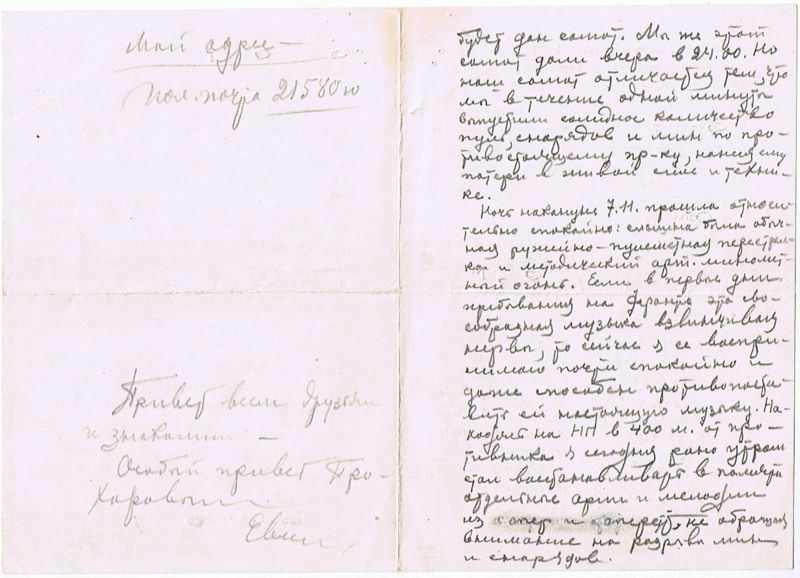 Мой адрес —
Пол. почта 21580 ю
Привет всем друзьям
и знакомым —
Особый привет Про-
хоровым
будет дан салют. Мы же этот
салют дали вчера в 24.00. Но
наш салют отличается тем, что
мы в течение одной минуты
выпустили солидное количество
пуль, снарядов и мин по про-
тивостоящему пр-ку, нанеся ему
потери в живой силе и техни-
ке.
Ночь накануне 7.11. прошла относи-
тельно спокойно: слышна была обыч-
ная ружейно-пулеметная перестрел-
ка и методический арт. миномет-
ный огонь. Если в первые дни
пребывания на фронте эта сво-
еобразная музыка взвинчивала
нервы, то сейчас я ее воспри-
нимаю почти спокойно и
даже способен противопоста-
вить ей настоящую музыку. На-
ходясь на НП в 400 м. от про-
тивника я сегодня рано утром
стал восстанавливать в памяти
отдельные арии и мелодии
из опер и оперетт, не обращая
внимание на разрывы мин
и снарядов.